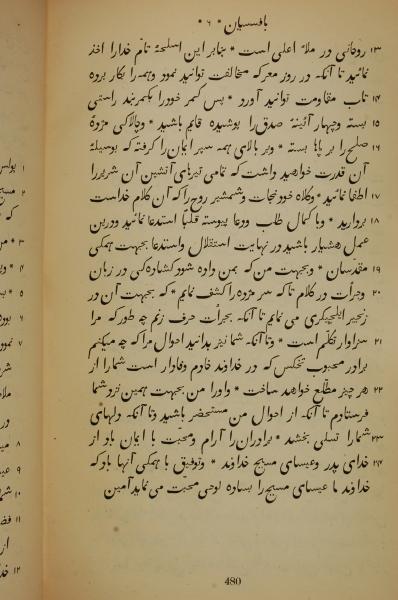 بافسسیان * ۶ *
۱۳ روحانی در ملاء اعلی است * بنابر این اسلحهٔ تام خدارا اخذ
نمائید تا آنکه در روز معرکه مخالفت توانید نمود وهمه را بکار برده
۱۴ تاب مقاومت توانید آورد * پس کمر خودرا بکمربند راستی
۱۵ بسته وچهار آئینهٔ صدق را پوشیده قایم باشید * وچالاکی مژدهٔ
۱۶ صلح را بر پا بسته * وبر بالای همه سپر ایمان را گرفته که بوسیلهٔ
آن قدرت خواهید داشت که تمامی تیرهای آتشین آن شریر را
۱۷ اطفا نمائید * وکلاه خود نجات وشمشیر روح را که آن کلام خداست
۱۸ بردارید * وبا کمال طلب ودعا پیوسته قلباً استدعا نمائید ودرین
عمل هشیار باشید در نهایت استقلال واستدعا بجهت همگی
۱۹ مقدّسان * وبجهت من که بمن داده شود کشاده‌کی در زبان
۲۰ وجرأت در کلام تا که سر مژده را کشف نمایم * که بجهت آن در
زنجیر ایلچیگری می نمایم تا آنکه بجرأت حرف زنم چه طور که مرا
۲۱ سزاوار تکلّم است * وتا آنکه شما نیز بدانید احوال مرا که چه میکنم
برادر محبوب تخکس که در خداوند خادم وفادار است شما را از
۲۲ هر چیز مطّلع خواهد ساخت * واورا من بجهت همین نزد شما
فرستادم تا آنکه از احوال من مستحضر باشید وتا آنکه دلهای
۲۳ شما را تسلی بخشد * برادران را آرام ومحبّت با ایمان باد از
۲۴ خدای پدر وعیسای مسیح خداوند * وتوفیق با همگی آنها باد که
خداوند ما عیسای مسیح را بساده لوحی محبّت می نماید آمین
480